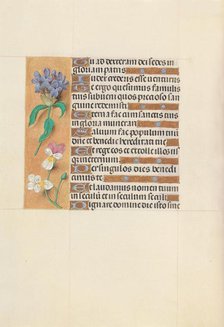 Tu ad dexteram dei sedes in
gloria patris
Te ergo quesumus famulis
tuis subueni quos precioso san
guine redemisti
Eterna fac cum sanctis tuis
in gloria munerari
Saluum fac populum tuum
domine et benedic hereditati tue
Et rege eos et extolle illos us
que in eternum
Per singulos dies benedi
camus te
Et laudamus nomen tuum
in seculum et in seculum seculi
Dignare domine die isto sine